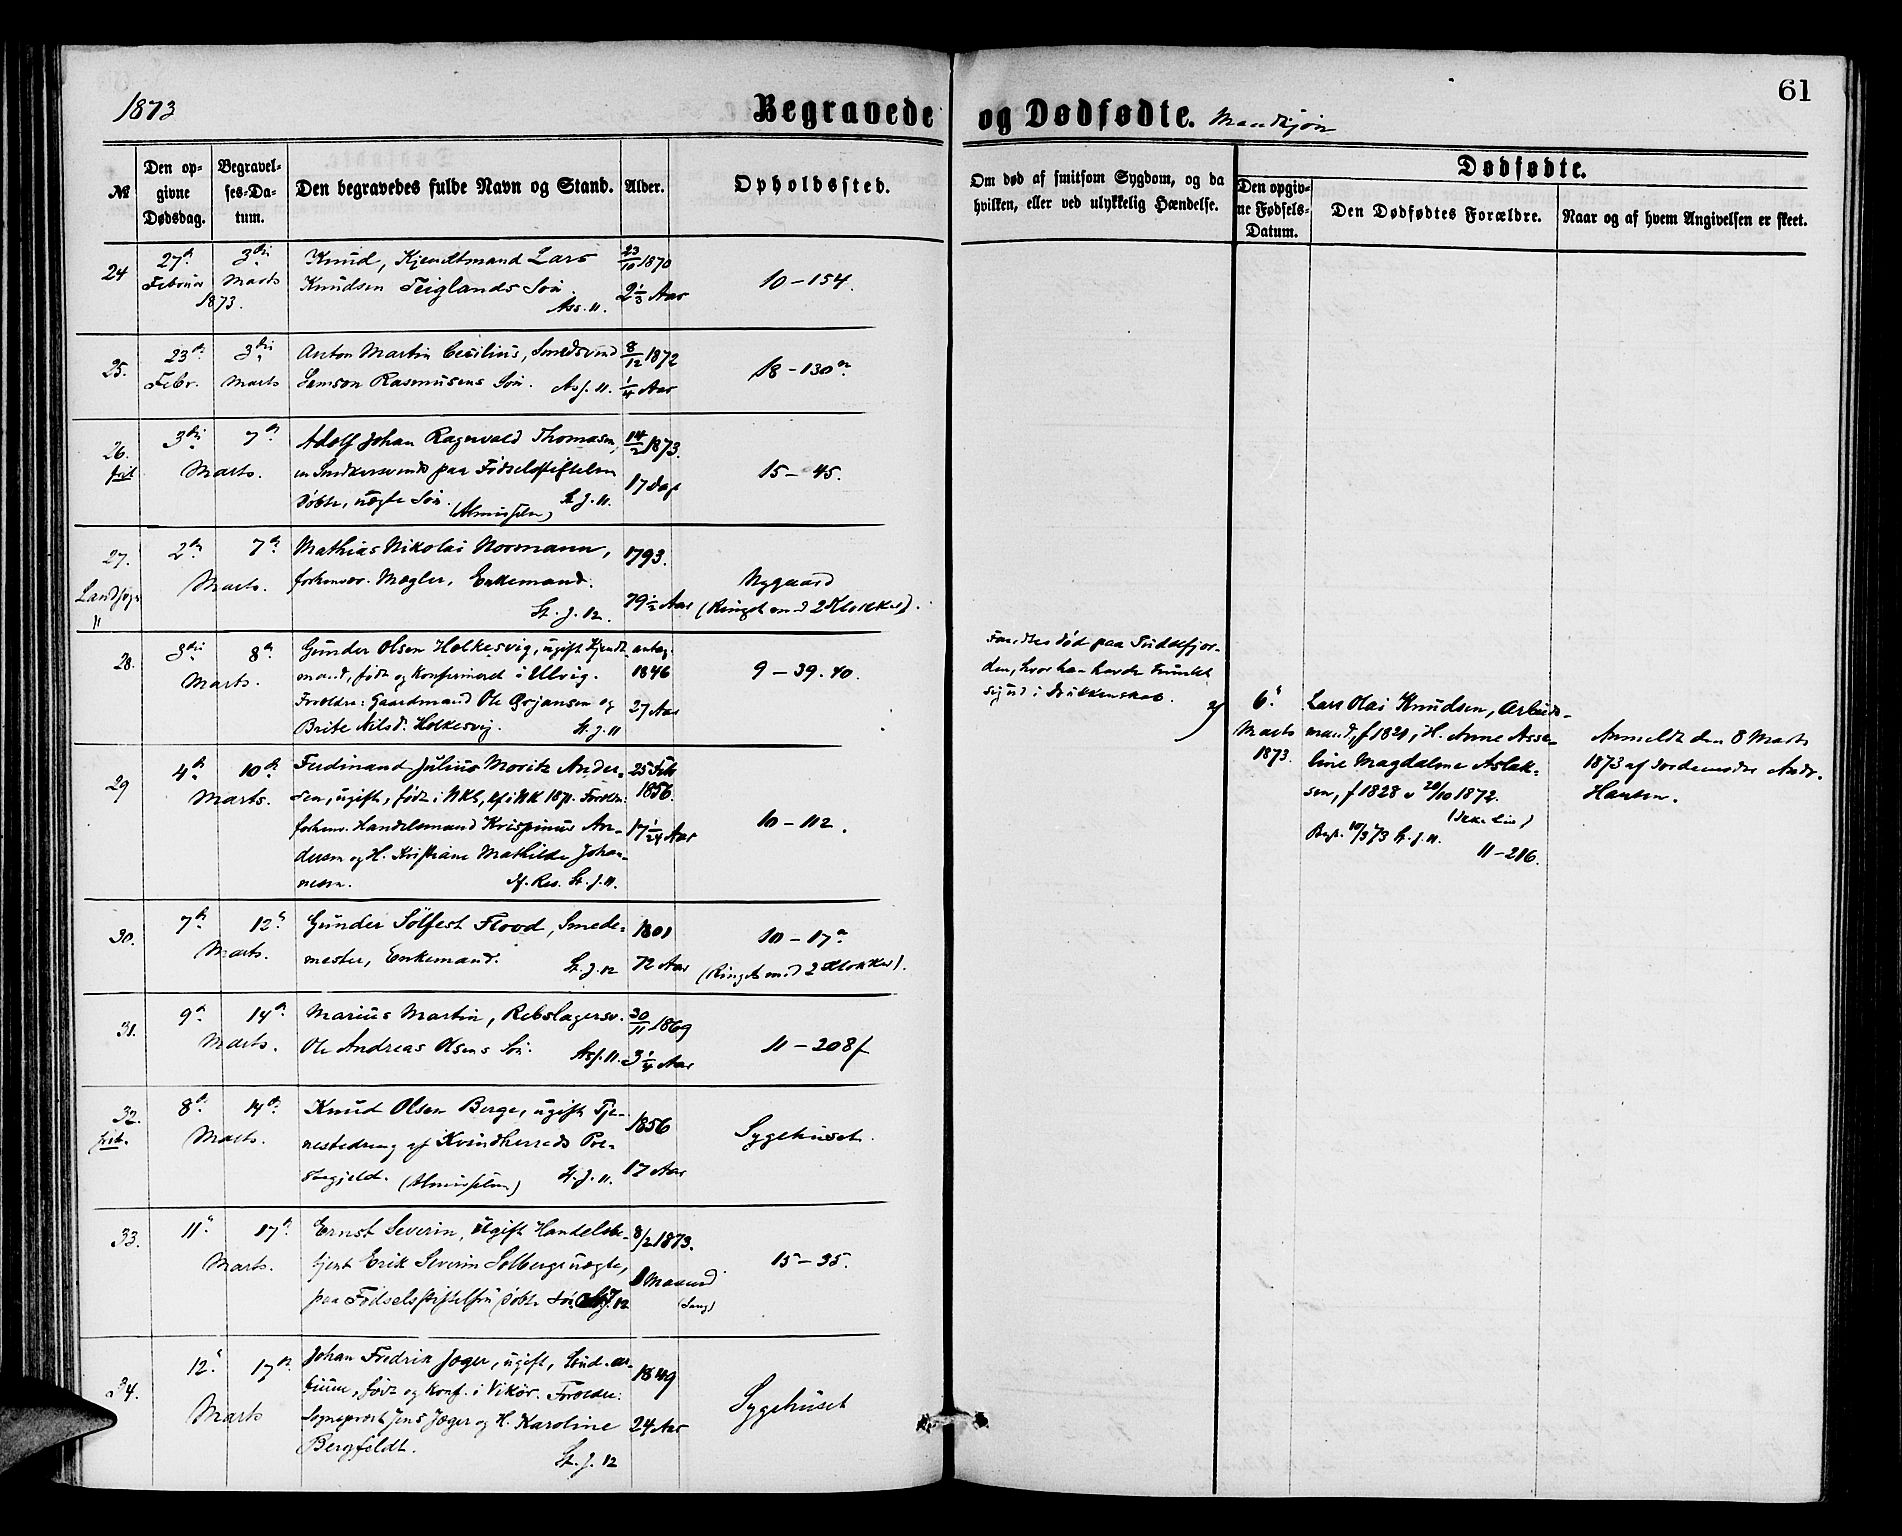 1873
Begravede og Dødfødte. Mandkjøn
61
№
Den opgivne Dødsdag.
Begravelses-Datum.
Den begravedes fulde Navn og Stand.
Alder.
Opholdssted.
Om død af smitsom Sygdom, og da hvilken, eller ved ulykkelig Hændelse.
Dødfødte.
Den opgivne Fødsels-Datum.
Den Dødfødtes Forældre.
Naar og af hvem Angivelsen er skeet.
24
27de Februar 1873.
3die Marts
Knud, Kjendtmand Lars
Knudsen Teiglands Søn.
Ass. 11.
23/10 1870
2 1/3 Aar
10 – 154.
25.
23de Febr.
3die Marts
Anton Martin Cecilius, Smedsvend
Samson Rasmusens Søn. Ass. 11.
8/12 1872
1/4 Aar
18 – 130 a.
26.
frit
3die 7de
Marts.
Adolf Johan Ragnvald Thomasen,
en Snedkersvends paa Fødselsstiftelsen
døbte, uægte Søn. St. J. 11.
14/2 1873.
17 Dage
15 – 45.
27.
Landsogn
"
2den 7de
Marts.
Mathias Nikolai Normann,
forhenvær. Mægler, Enkemand.
St. J. 12.
1793.
79 1/2 Aar
Nygaard
(Ringet med 2 Klokker).
28.
3die 8de
Marts.
Gunder Olsen Holkesvig, ugift Kjendt-
mand, født og konfirmeret i Ulvig.
Forældre: Gaardmand Ole Ørjansen og
Brite Nilsd. Holkesvig. St. J. 11
antag.
1846
27 Aar
9 – 39.40.
Fandtes død paa Puddefjor-
den, hvor han havde
i Drukkenskab.
29
4de 10de
Marts.
Ferdinand Julius Moritz Ander-
sen, ugift, født i NK 1871. Forældre:
forhenv. Handelsmand Krispinus An-
dersen og H. Kristiane Mathilde Johan-
nesen. St. J. 11.
25 Feb
1856.
17 1/24 Aar
10 – 112.
30.
7de 12te
Marts.
Gunder Sølfest Flood, Smede-
mester, Enkemand. St. J. 12
1801
72 Aar
10 – 17 a.
(Ringet med 2 Klokker).
31.
9de 14de
Marts.
Marius Martin, Rebslagersv.
Ole Andreas Olsens Søn. Ass. 11.
30/11 1869
3 1/4 Aar
11 – 208 f
32.
frit.
8de 14de
Marts.
Knud Olsen Berge, ugift Tje-
nestedreng af Kvindherreds Præ-
stegjeld. St. J. 11.
1856
17 Aar
Sygehuset.
33.
11te 17de
Marts.
Ernst Severin, ugift Handelsbe-
tjent Erik Severin Solbergs uægte,
paa Fødselsstiftelsen døbte Søn. 12
8/2 1873.
1 Maaned
15 – 35.
34.
12te 17de
Marts
Johan Fredrik Jæger, ugift,
født og Konf. i Vikør. Forældre:
Sogneprest Jens Jæger og H. Karoline
Bergfeldt.
St. J. 12
1849
24 Aar
Sygehuset
2)
6te
Marts
1873.
Lars Olai Knudsen, Arbeids-
mand, f 1821, H. Anne Asse-
line Magdalene Aslak-
sen, f 1828 v 20/10 1872.
Begr. 10/3 73 St. J. 11.
11 – 216.
Anmeldt den 8 Marts
1873 af Jordemoder Andr.
Hansen.